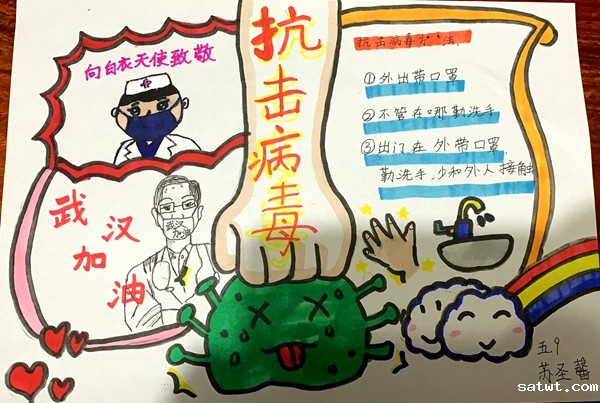 向白衣天使致敬
武汉
加油
抗击病毒
抗击病毒方法
①外出带口罩
②不管在哪勤洗手
③出门在外带口罩
勤洗手,少和外人接触
五9
苏圣馨
satwt.com